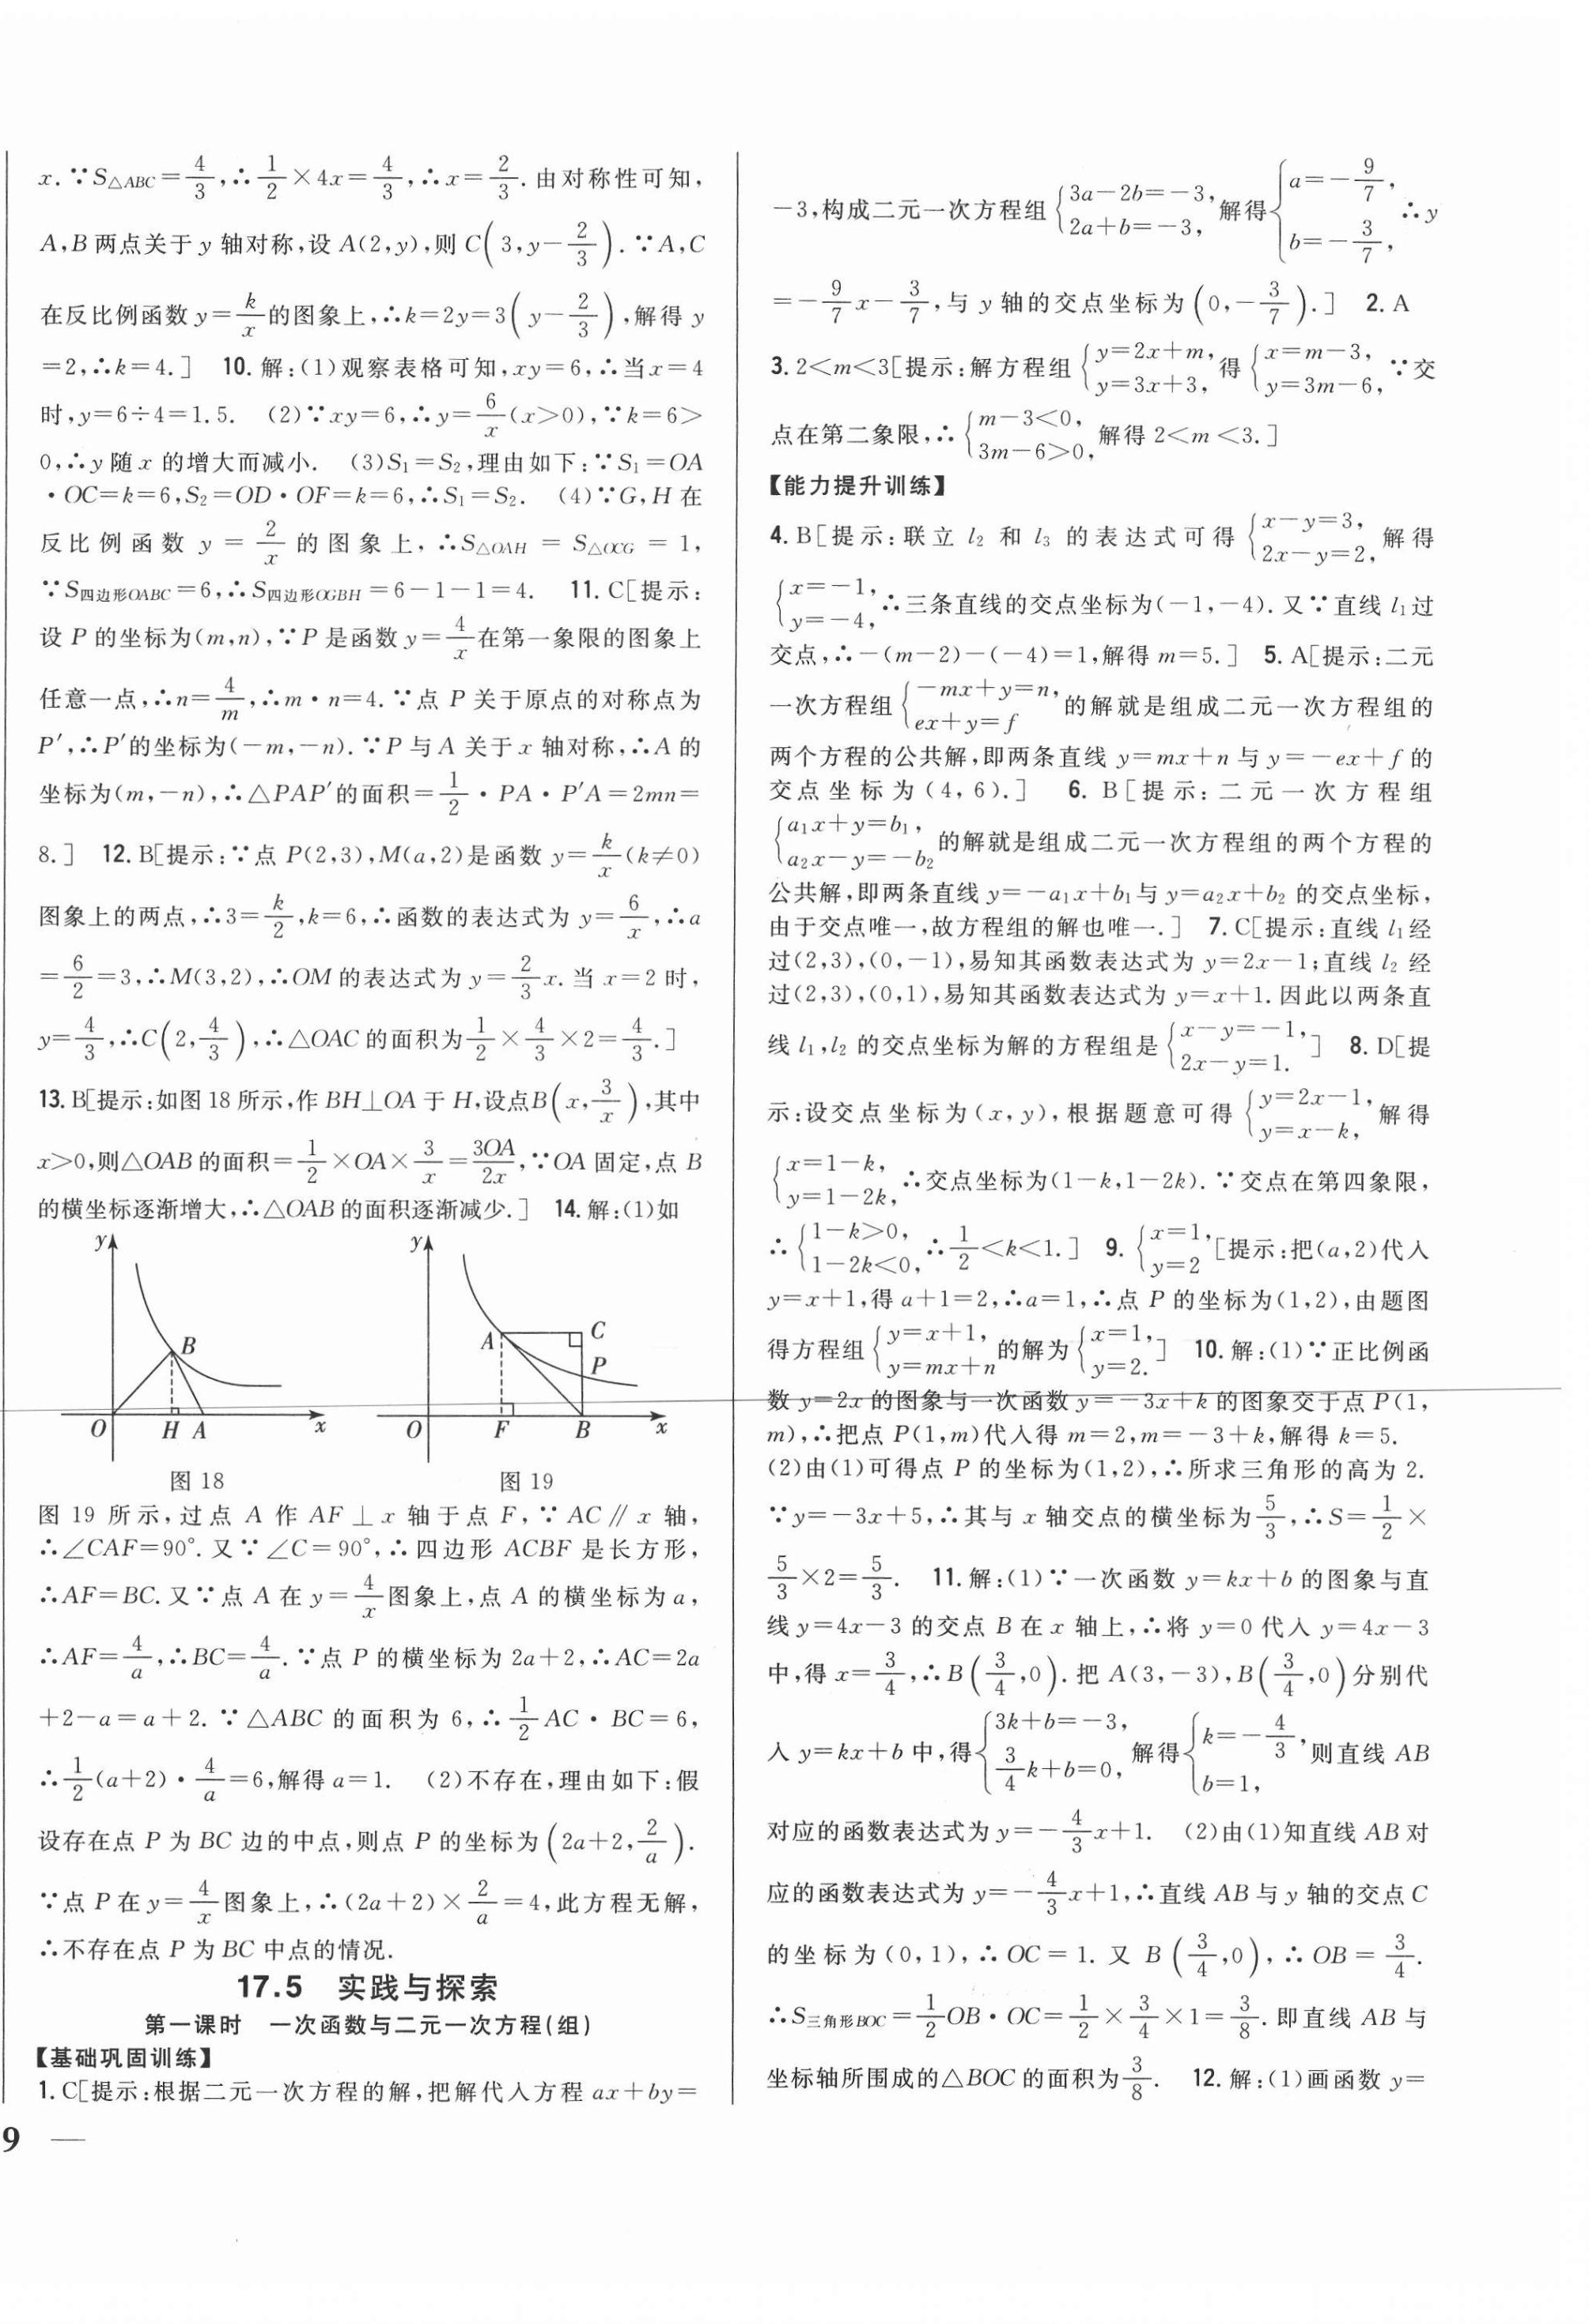 x.∵S△ABC=4/3,∴1/2×4x=4/3,∴x=2/3.由对称性可知,
A,B两点关于y轴对称,设A(2,y),则C(3,y-2/3).∵A,C
在反比例函数y=k/x的图象上,∴k=2y=3(y-2/3),解得y
=2,∴k=4.] 10.解:(1)观察表格可知,xy=6,∴当x=4
时,y=6÷4=1.5. (2)∵xy=6,∴y=6/x(x>0),∵k=6>
0,∴y随x的增大而减小. (3)S₁=S₂,理由如下:∵S₁=OA
·OC=k=6,S₂=OD·OF=k=6,∴S₁=S₂. (4)∵G,H在
反比例函数y=2/x的图象上,∴S△OAH=S△OCG=1,
∵S四边形OABC=6,∴S四边形OGBH=6-1-1=4. 11.C[提示:
设P的坐标为(m,n),∵P是函数y=4/x在第一象限的图象上
任意一点,∴n=4/m,∴m·n=4.∵点P关于原点的对称点为
P′,∴P′的坐标为(-m,-n).∵P与A关于x轴对称,∴A的
坐标为(m,-n),∴△PAP′的面积=1/2·PA·P′A=2mn=
8.] 12.B[提示:∵点P(2,3),M(a,2)是函数y=k/x(k≠0)
图象上的两点,∴3=k/2,k=6,∴函数的表达式为y=6/x,∴a
=6/2=3,∴M(3,2),∴OM的表达式为y=2/3x.当x=2时,
y=4/3,∴C(2,4/3),∴△OAC的面积为1/2×4/3×2=4/3.]
13.B[提示:如图18所示,作BH⊥OA于H,设点B(x,3/x),其中
x>0,则△OAB的面积=1/2×OA×3/x=3OA/2x,∵OA固定,点B
的横坐标逐渐增大,∴△OAB的面积逐渐减少.] 14.解:(1)如
y B O H A x
图18
y A C P O F B x
图19
图19所示,过点A作AF⊥x轴于点F,∵AC∥x轴,
∴∠CAF=90°.又∵∠C=90°,∴四边形ACBF是长方形,
∴AF=BC.又∵点A在y=4/x图象上,点A的横坐标为a,
∴AF=4/a,∴BC=4/a.∵点P的横坐标为2a+2,∴AC=2a
+2-a=a+2.∵△ABC的面积为6,∴1/2AC·BC=6,
∴1/2(a+2)·4/a=6,解得a=1. (2)不存在,理由如下:假
设存在点P为BC边的中点,则点P的坐标为(2a+2,2/a).
∵点P在y=4/x图象上,∴(2a+2)×2/a=4,此方程无解,
∴不存在点P为BC中点的情况.
17.5 实践与探索
第一课时 一次函数与二元一次方程(组)
【基础巩固训练】
1.C[提示:根据二元一次方程的解,把解代入方程ax+by=
9 —
-3,构成二元一次方程组{3a-2b=-3, 2a+b=-3,解得{a=-9/7, b=-3/7,∴y
=-9/7x-3/7,与y轴的交点坐标为(0,-3/7).] 2.A
3.2<m<3[提示:解方程组{y=2x+m, y=3x+3,得{x=m-3, y=3m-6,∵交
点在第二象限,∴{m-3<0, 3m-6>0,解得2<m<3.]
【能力提升训练】
4.B[提示:联立l₂和l₃的表达式可得{x-y=3, 2x-y=2,解得
{x=-1, y=-4,∴三条直线的交点坐标为(-1,-4).又∵直线l₁过
交点,∴-(m-2)-(-4)=1,解得m=5.] 5.A[提示:二元
一次方程组{-mx+y=n, ex+y=f的解就是组成二元一次方程组的
两个方程的公共解,即两条直线y=mx+n与y=-ex+f的
交点坐标为(4,6).] 6.B[提示:二元一次方程组
{a₁x+y=b₁, a₂x-y=-b₂的解就是组成二元一次方程组的两个方程的
公共解,即两条直线y=-a₁x+b₁与y=a₂x+b₂的交点坐标,
由于交点唯一,故方程组的解也唯一.] 7.C[提示:直线l₁经
过(2,3),(0,-1),易知其函数表达式为y=2x-1;直线l₂经
过(2,3),(0,1),易知其函数表达式为y=x+1.因此以两条直
线l₁,l₂的交点坐标为解的方程组是{x-y=-1, 2x-y=1.] 8.D[提
示:设交点坐标为(x,y),根据题意可得{y=2x-1, y=x-k,解得
{x=1-k, y=1-2k,∴交点坐标为(1-k,1-2k).∵交点在第四象限,
∴{1-k>0, 1-2k<0,∴1/2<k<1.] 9.{x=1, y=2[提示:把(a,2)代入
y=x+1,得a+1=2,∴a=1,∴点P的坐标为(1,2),由题图
得方程组{y=x+1, y=mx+n的解为{x=1, y=2.] 10.解:(1)∵正比例函
数y=2x的图象与一次函数y=-3x+k的图象交于点P(1,
m),∴把点P(1,m)代入得m=2,m=-3+k,解得k=5.
(2)由(1)可得点P的坐标为(1,2),∴所求三角形的高为2.
∵y=-3x+5,∴其与x轴交点的横坐标为5/3,∴S=1/2×
5/3×2=5/3. 11.解:(1)∵一次函数y=kx+b的图象与直
线y=4x-3的交点B在x轴上,∴将y=0代入y=4x-3
中,得x=3/4,∴B(3/4,0).把A(3,-3),B(3/4,0)分别代
入y=kx+b中,得{3k+b=-3, 3/4k+b=0,解得{k=-4/3, b=1,则直线AB
对应的函数表达式为y=-4/3x+1. (2)由(1)知直线AB对
应的函数表达式为y=-4/3x+1,∴直线AB与y轴的交点C
的坐标为(0,1),∴OC=1.又B(3/4,0),∴OB=3/4.
∴S三角形BOC=1/2OB·OC=1/2×3/4×1=3/8.即直线AB与
坐标轴所围成的△BOC的面积为3/8. 12.解:(1)画函数y=